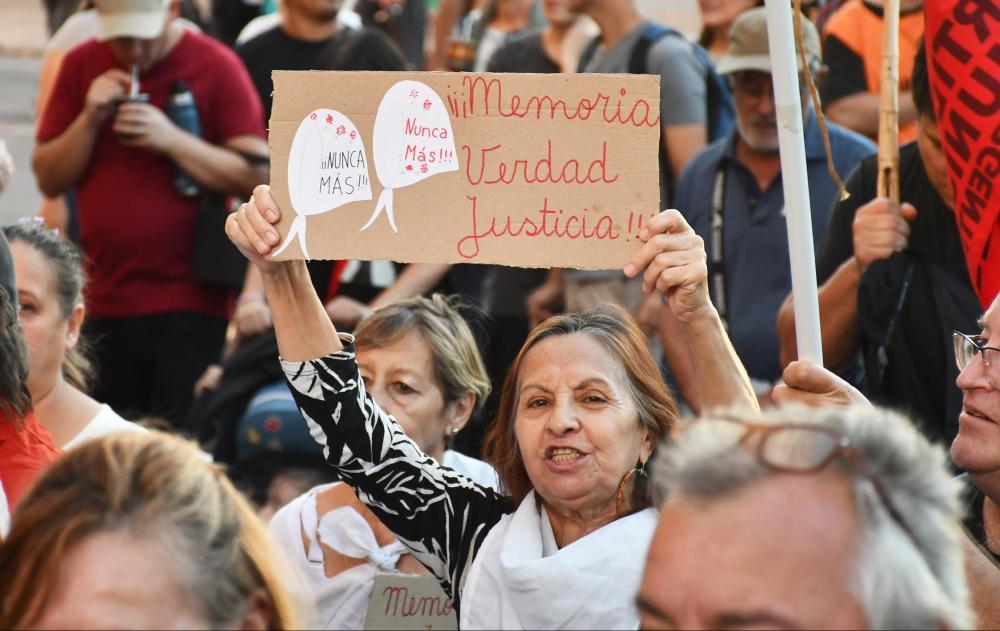 ¡¡NUNCA
MÁS!!!
Nunca
Más!!!
¡¡¡Memoria
Verdad
Justicia!!!
Memo